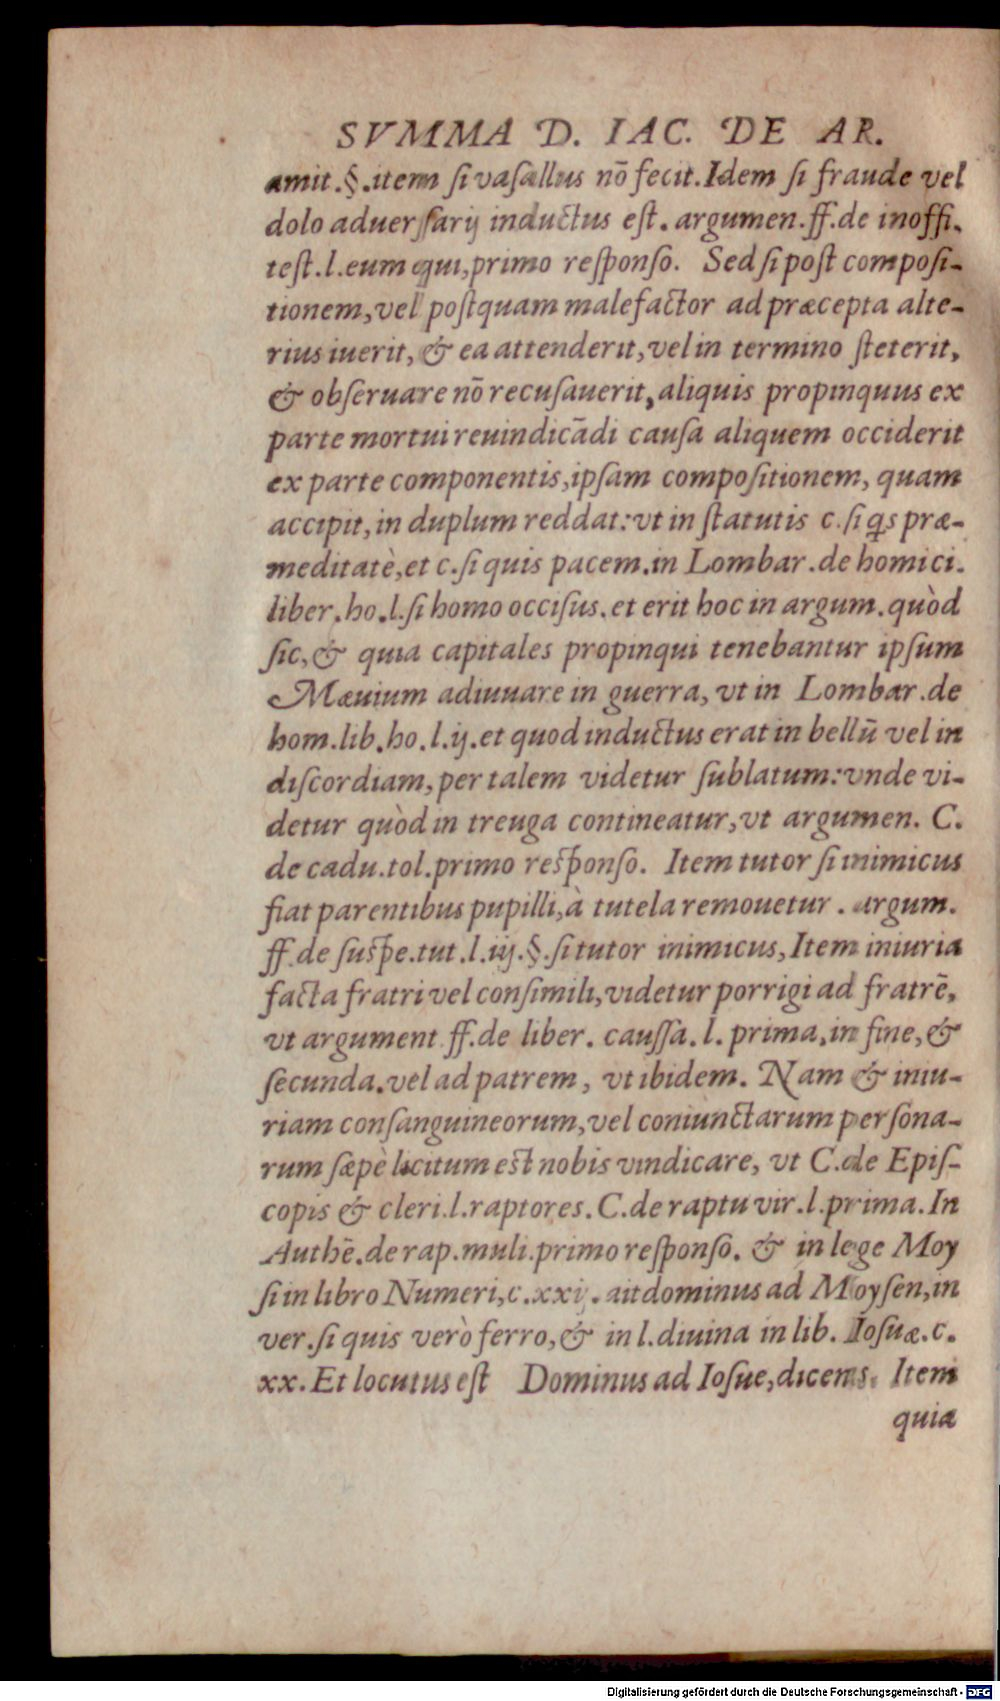 SVMMA D. IAC. DE AR.
amit.§.item ſi vaſallus nō fecit.Idem ſi fraude vel
dolo aduerſſarij inductus eſt. argumen.ff.de inoffi.
teſt.l.eum qui,primo reſponſo. Sed ſi poſt compoſi-
tionem,vel poſtquam malefactor ad præcepta alte-
rius iuerit, & ea attenderit,vel in termino ſteterit,
& obſeruare nō recuſauerit,aliquis propinquus ex
parte mortui reuindicādi cauſa aliquem occiderit
ex parte componentis,ipſam compoſitionem, quam
accipit,in duplum reddat:vt in ſtatutis c.ſi qs præ-
meditatè,et c.ſi quis pacem.in Lombar.de homici.
liber.ho.l.ſi homo occiſus.et erit hoc in argum.quòd
ſic,& quia capitales propinqui tenebantur ipſum
Mæuium adiuuare in guerra, vt in Lombar.de
hom.lib.ho.l.ij.et quod inductus erat in bellū vel in
diſcordiam,per talem videtur ſublatum:vnde vi-
detur quòd in treuga contineatur,vt argumen. C.
de cadu.tol.primo reſponſo. Item tutor ſi inimicus
fiat parentibus pupilli,à tutela remouetur . argum.
ff.de ſuſpe.tut.l.iij.§.ſi tutor inimicus,Item iniuria
facta fratri vel conſimili,videtur porrigi ad fratrē,
vt argument ff.de liber. cauſſa.l. prima,in fine,&
ſecunda.vel ad patrem, vt ibidem. Nam & iniu-
riam conſanguineorum,vel coniunctarum perſona-
rum ſæpè licitum eſt nobis vindicare, vt C.de Epiſ-
copis & cleri.l.raptores.C.de raptu vir.l.prima.In
Authē.de rap.muli.primo reſponſo. & in lege Moy
ſi in libro Numeri,c.xxij. ait dominus ad Moyſen,in
ver.ſi quis verò ferro,& in l.diuina in lib. Ioſuæ.c.
xx.Et locutus eſt Dominus ad Ioſue,dicens. Item
quia
Digitalisierung gefördert durch die Deutsche Forschungsgemeinschaft - DFG